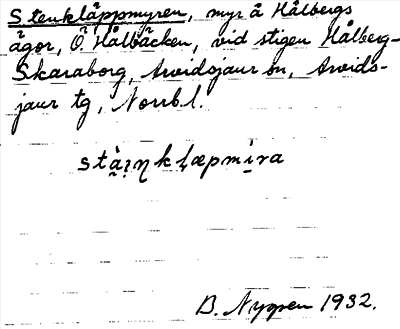 Stenkläppmyren, myr å Hålbergs
ägor, Ö Hålbäcken, vid stigen Hålberg-
Skaraborg, Arvidsjaur sn, Arvids-
jaur tg, Norrb. l.
B. Nygren 1932.